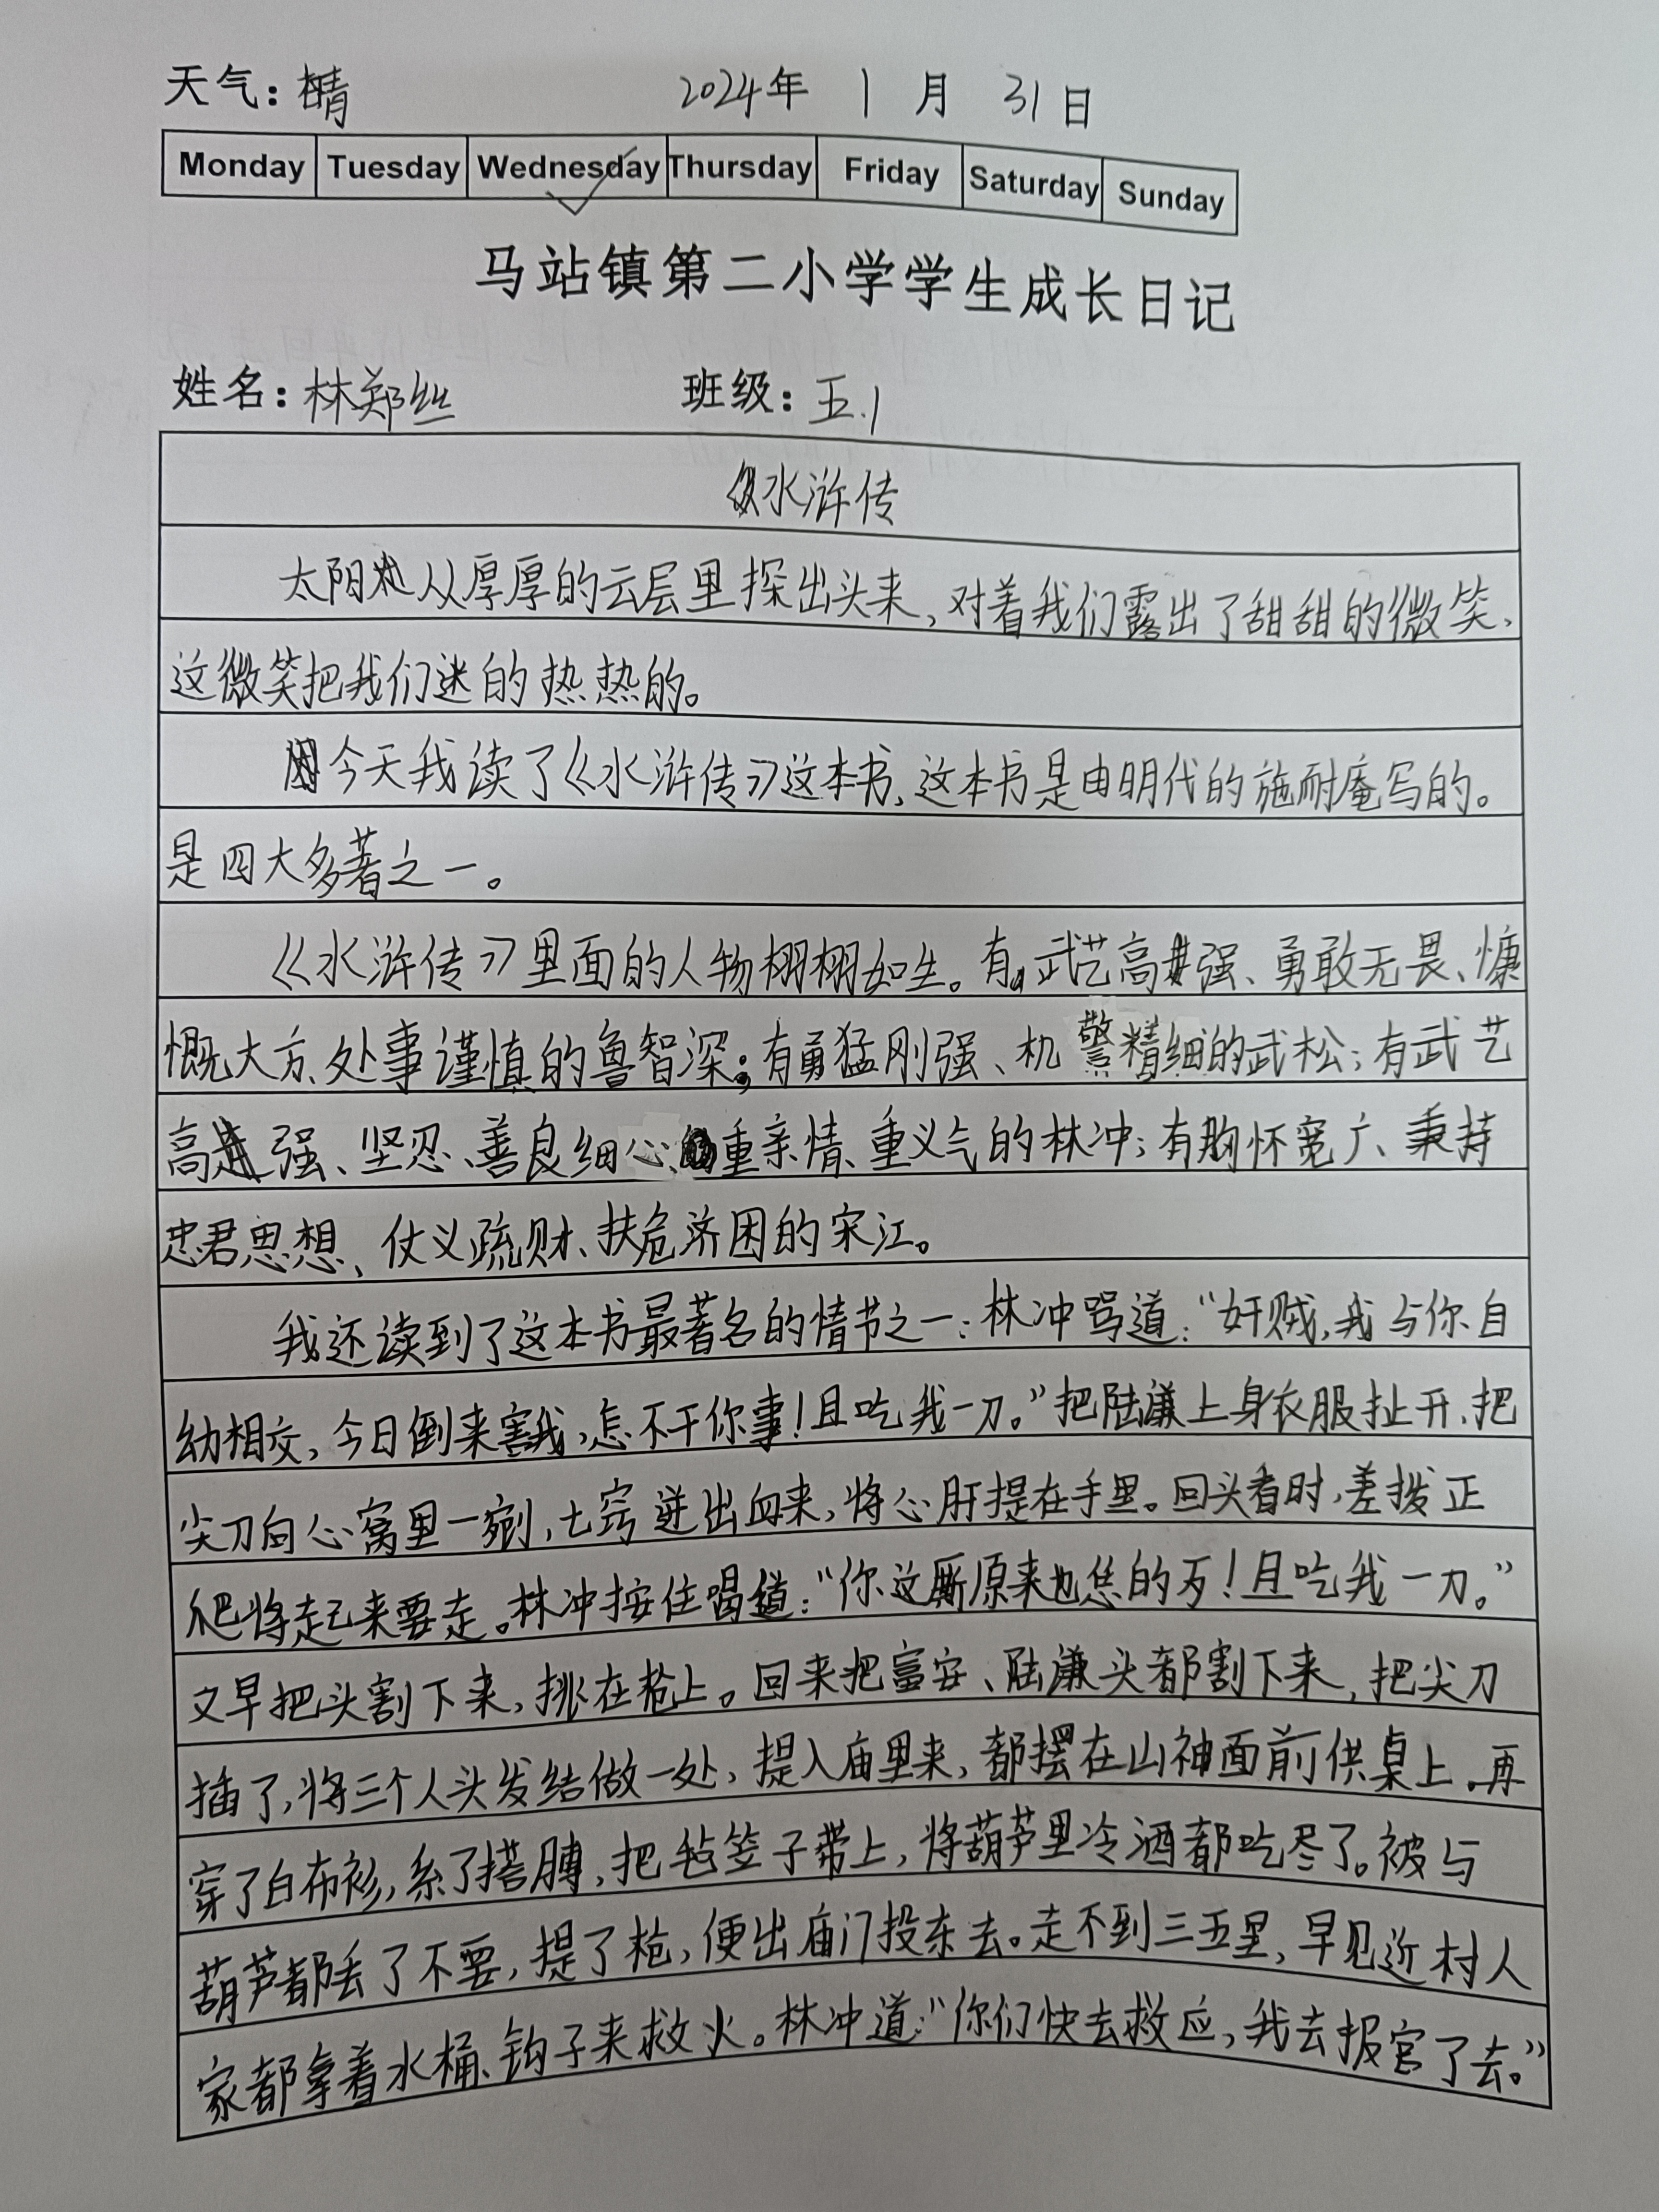 天气：晴 2024年 1 月 31 日
Monday Tuesday Wednesday Thursday Friday Saturday Sunday
马站镇第二小学学生成长日记
姓名：林郑丝 班级：五.1
水浒传
太阳从厚厚的云层里探出头来，对着我们露出了甜甜的微笑，
这微笑把我们迷的热热的。
今天我读了《水浒传》这本书，这本书是由明代的施耐庵写的。
是四大名著之一。
《水浒传》里面的人物栩栩如生。有武艺高强、勇敢无畏、慷
慨大方、处事谨慎的鲁智深；有勇猛刚强、机警精细的武松；有武艺
高强、坚忍、善良细心、重亲情、重义气的林冲；有胸怀宽广、秉持
忠君思想、仗义疏财、扶危济困的宋江。
我还读到了这本书最著名的情节之一：林冲骂道：“奸贼，我与你自
幼相交，今日倒来害我，怎不干你事！且吃我一刀。”把陆谦上身衣服扯开，把
尖刀向心窝里一剜，七窍迸出血来，将心肝提在手里。回头看时，差拨正
爬将起来要走。林冲按住喝道：“你这厮原来也恁的歹！且吃我一刀。”
又早把头割下来，挑在枪上。回来把富安、陆谦头都割下来，把尖刀
插了，将三个人头发结做一处，提入庙里来，都摆在山神面前供桌上，再
穿了白布衫，系了搭膊，把毡笠子带上，将葫芦里冷酒都吃尽了。被与
葫芦都丢了不要，提了枪，便出庙门投东去。走不到三五里，早见近村人
家都拿着水桶、钩子来救火。林冲道：“你们快去救应，我去报官了去。”